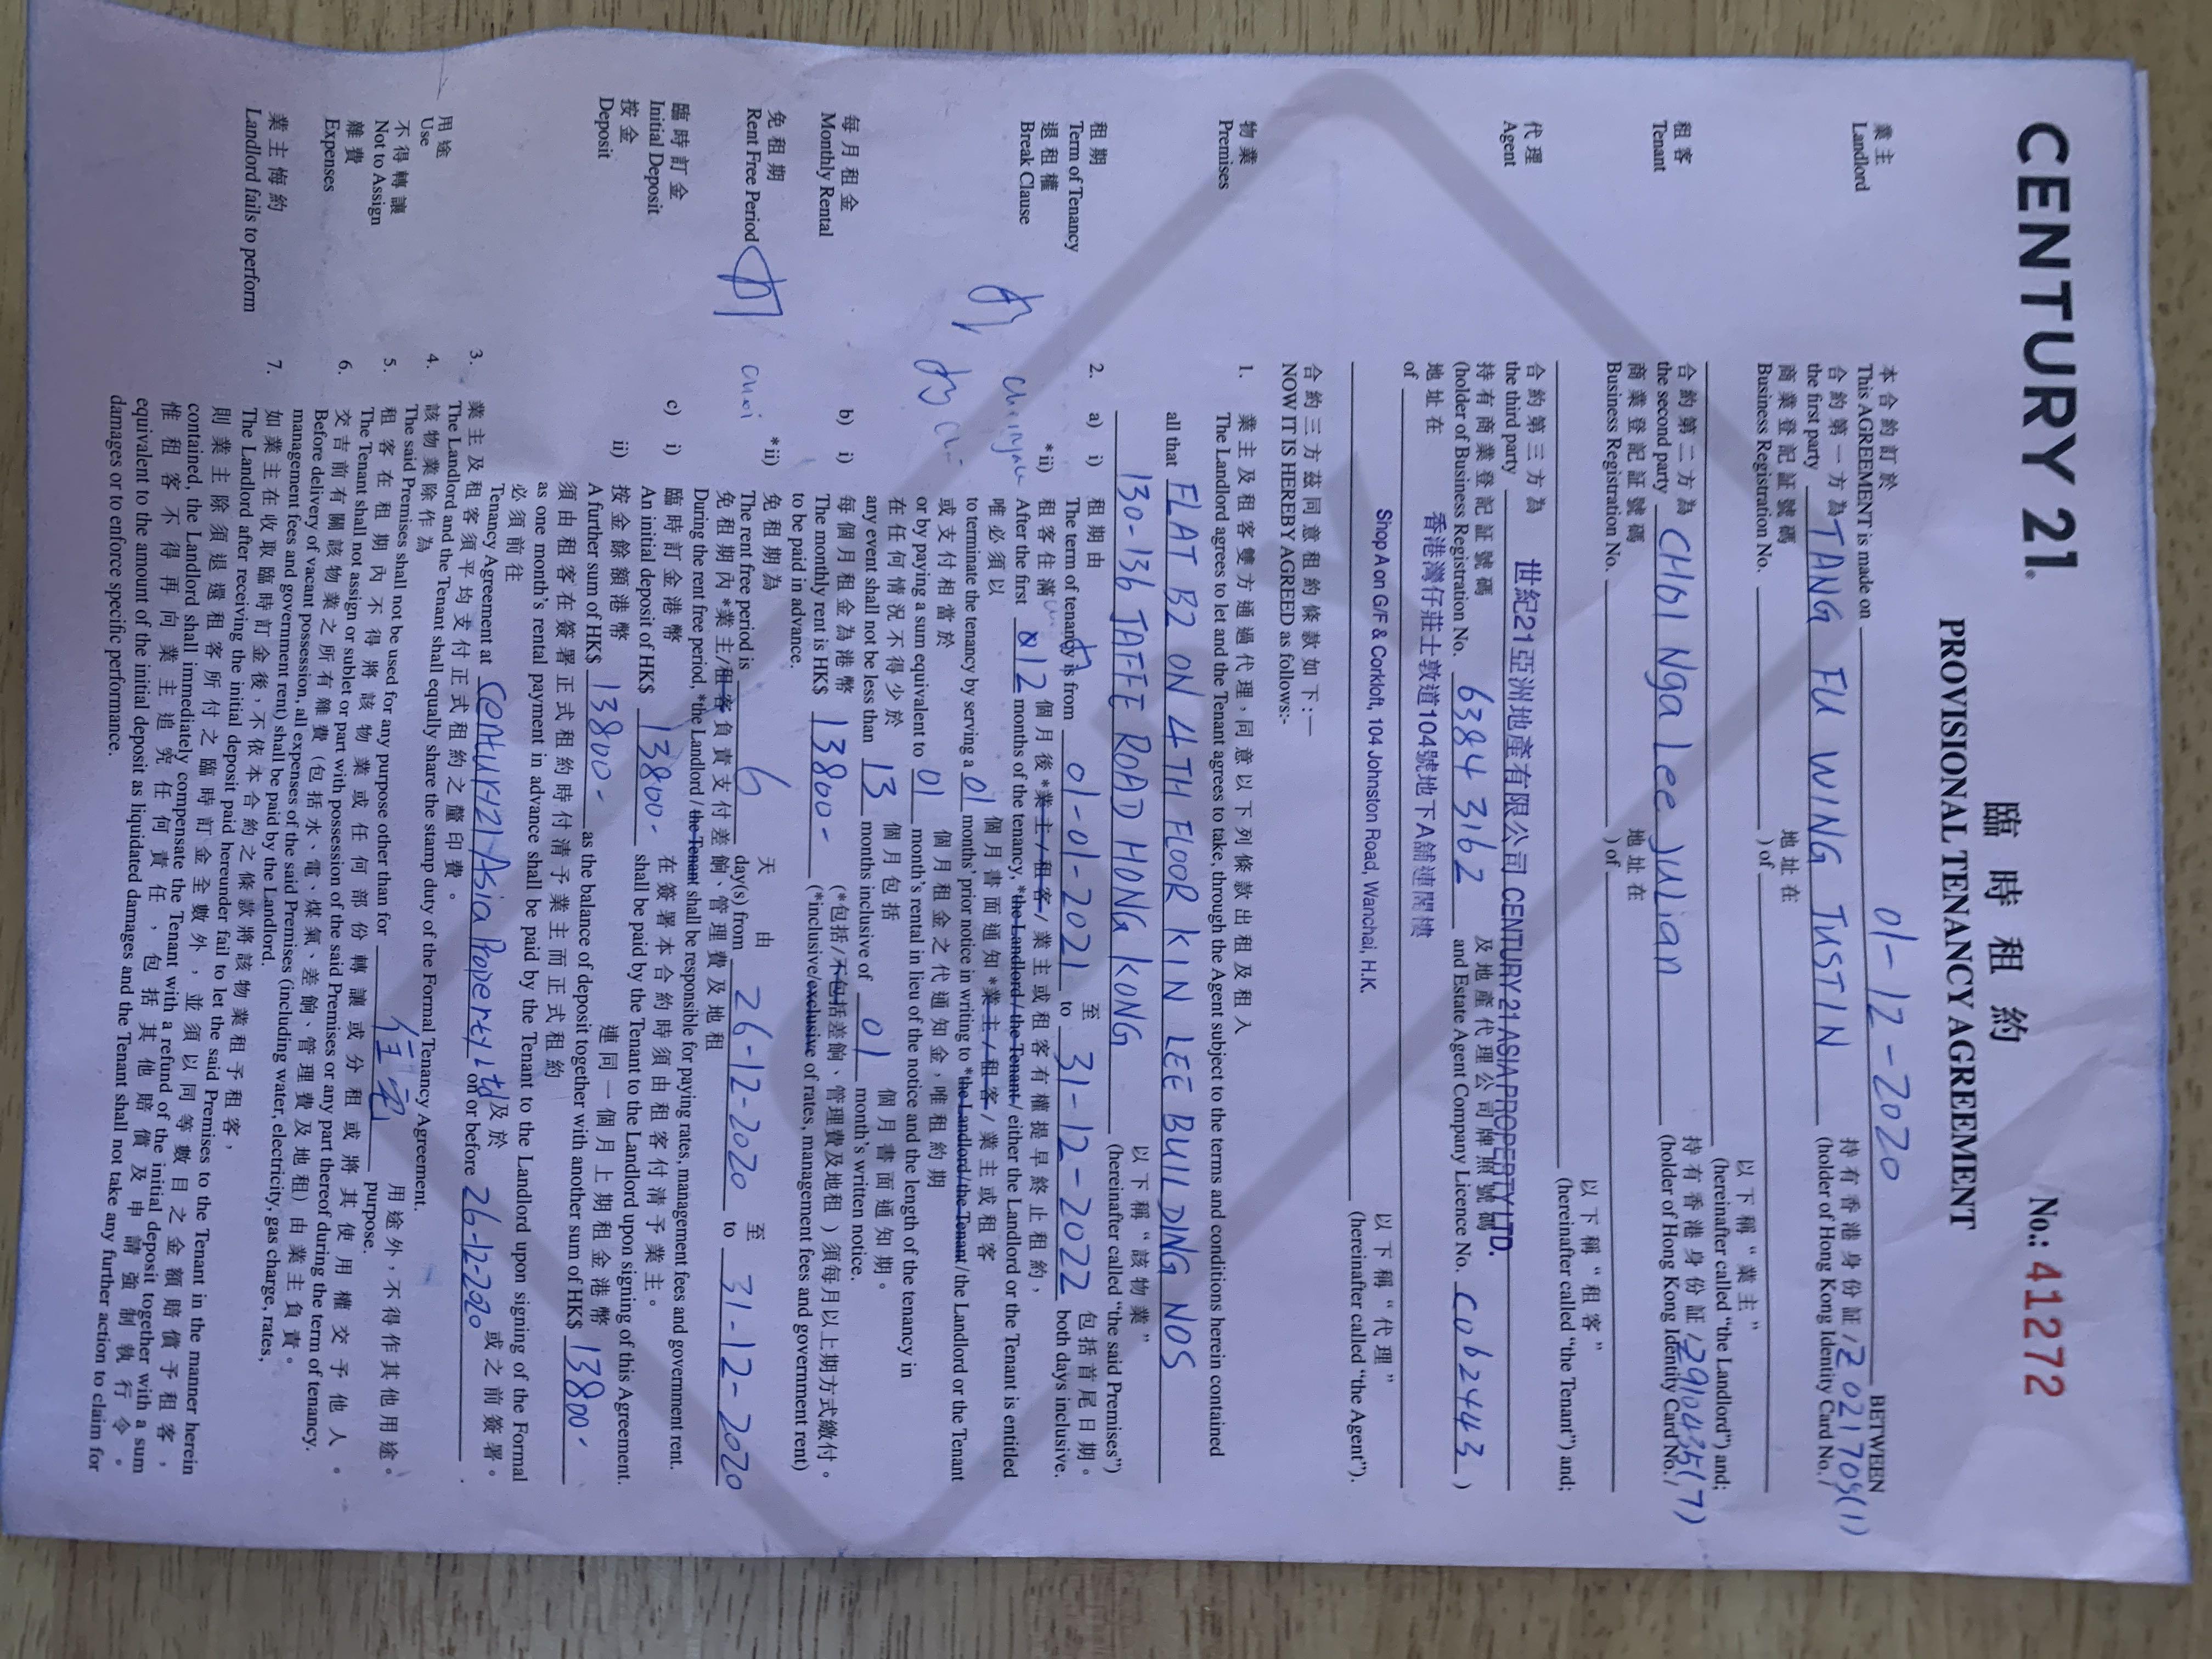 CENTURY 21®
No.: 412772
臨時租約
PROVISIONAL TENANCY AGREEMENT
本合約訂於
This AGREEMENT is made on 01-12-2020 BETWEEN
業主
Landlord
合約第一方為 持有香港身份証/
the first party TANG FU WING JUSTIN (holder of Hong Kong Identity Card No./
商業登記証號碼 地址在
Business Registration No. ) of
以下稱“業主”
(hereinafter called “the Landlord”) and;
租客
Tenant
合約第二方為 持有香港身份証/
the second party CHOI Nga Lee JULian (holder of Hong Kong Identity Card No./
商業登記証號碼 地址在
Business Registration No. ) of
以下稱“租客”
(hereinafter called “the Tenant”) and;
代理
Agent
合約第三方為
the third party 世紀21亞洲地產有限公司 CENTURY 21 ASIA PROPERTY LTD.
持有商業登記証號碼 及地產代理公司牌照號碼
(holder of Business Registration No. 63843162 and Estate Agent Company Licence No. C062443 )
地址在 香港灣仔莊士敦道104號地下A舖連閣樓
of Shop A on G/F & Corkloft, 104 Johnston Road, Wanchai, H.K.
以下稱“代理”
(hereinafter called “the Agent”).
合約三方茲同意租約條款如下:—
NOW IT IS HEREBY AGREED as follows:-
物業
Premises
1. 業主及租客雙方通過代理,同意以下列條款出租及租入
The Landlord agrees to let and the Tenant agrees to take, through the Agent subject to the terms and conditions herein contained
all that FLAT B2 ON 4TH FLOOR KIN LEE BUILDING NOS
130-136 JAFFE ROAD HONG KONG 以下稱“該物業”
(hereinafter called “the said Premises”)
租期
Term of Tenancy
2. a) i) 租期由 至 包括首尾日期。
The term of tenancy is from 01-01-2021 to 31-12-2022 both days inclusive.
退租權
Break Clause
*ii) 租客住滿 12 個月後*業主/租客/業主或租客有權提早終止租約,
After the first months of the tenancy, *the Landlord / the Tenant / either the Landlord or the Tenant is entitled
唯必須以 個月書面通知*業主/租客/業主或租客
to terminate the tenancy by serving a 01 months’ prior notice in writing to *the Landlord/the Tenant/ the Landlord or the Tenant
或支付相當於 個月租金之代通知金,唯租約期
or by paying a sum equivalent to 01 month’s rental in lieu of the notice and the length of the tenancy in
在任何情況不得少於 個月包括 個月書面通知期。
any event shall not be less than 13 months inclusive of 01 month’s written notice.
每月租金
Monthly Rental
b) i) 每個月租金為港幣 (*包括/不包括差餉、管理費及地租)須每月以上期方式繳付。
The monthly rent is HK$ 13800- (*inclusive/exclusive of rates, management fees and government rent)
to be paid in advance.
免租期
Rent Free Period
*ii) 免租期為 天由 至
The rent free period is 6 day(s) from 26-12-2020 to 31-12-2020
免租期內*業主/租客負責支付差餉、管理費及地租
During the rent free period, *the Landlord / the Tenant shall be responsible for paying rates, management fees and government rent.
臨時訂金
Initial Deposit
c) i) 臨時訂金港幣 在簽署本合約時須由租客付清予業主。
An initial deposit of HK$ 13800- shall be paid by the Tenant to the Landlord upon signing of this Agreement.
按金
Deposit
ii) 按金餘額港幣 連同一個月上期租金港幣
A further sum of HK$ 13800- as the balance of deposit together with another sum of HK$ 13800-
須由租客在簽署正式租約時付清予業主而正式租約
as one month’s rental payment in advance shall be paid by the Tenant to the Landlord upon signing of the Formal
必須前往 及於 或之前簽署。
Tenancy Agreement at Century21 Asia Property Ltd on or before 26-12-2020 .
3. 業主及租客須平均支付正式租約之釐印費。
The Landlord and the Tenant shall equally share the stamp duty of the Formal Tenancy Agreement.
用途
Use
4. 該物業除作為 住宅 用途外,不得作其他用途。
The said Premises shall not be used for any purpose other than for purpose.
不得轉讓
Not to Assign
5. 租客在租期內不得將該物業或任何部份轉讓或分租或將其使用權交予他人。
The Tenant shall not assign or sublet or part with possession of the said Premises or any part thereof during the term of tenancy.
雜費
Expenses
6. 交吉前有關該物業之所有雜費(包括水、電、煤氣、差餉、管理費及地租)由業主負責。
Before delivery of vacant possession, all expenses of the said Premises (including water, electricity, gas charge, rates,
management fees and government rent) shall be paid by the Landlord.
業主悔約
Landlord fails to perform
7. 如業主在收取臨時訂金後,不依本合約之條款將該物業租予租客,
The Landlord after receiving the initial deposit paid hereunder fail to let the said Premises to the Tenant in the manner herein
則業主除須退還租客所付之臨時訂金全數外,並須以同等數目之金額賠償予租客,
contained, the Landlord shall immediately compensate the Tenant with a refund of the initial deposit together with a sum
惟租客不得再向業主追究任何責任,包括其他賠償及申請強制執行令。
equivalent to the amount of the initial deposit as liquidated damages and the Tenant shall not take any further action to claim for
damages or to enforce specific performance.